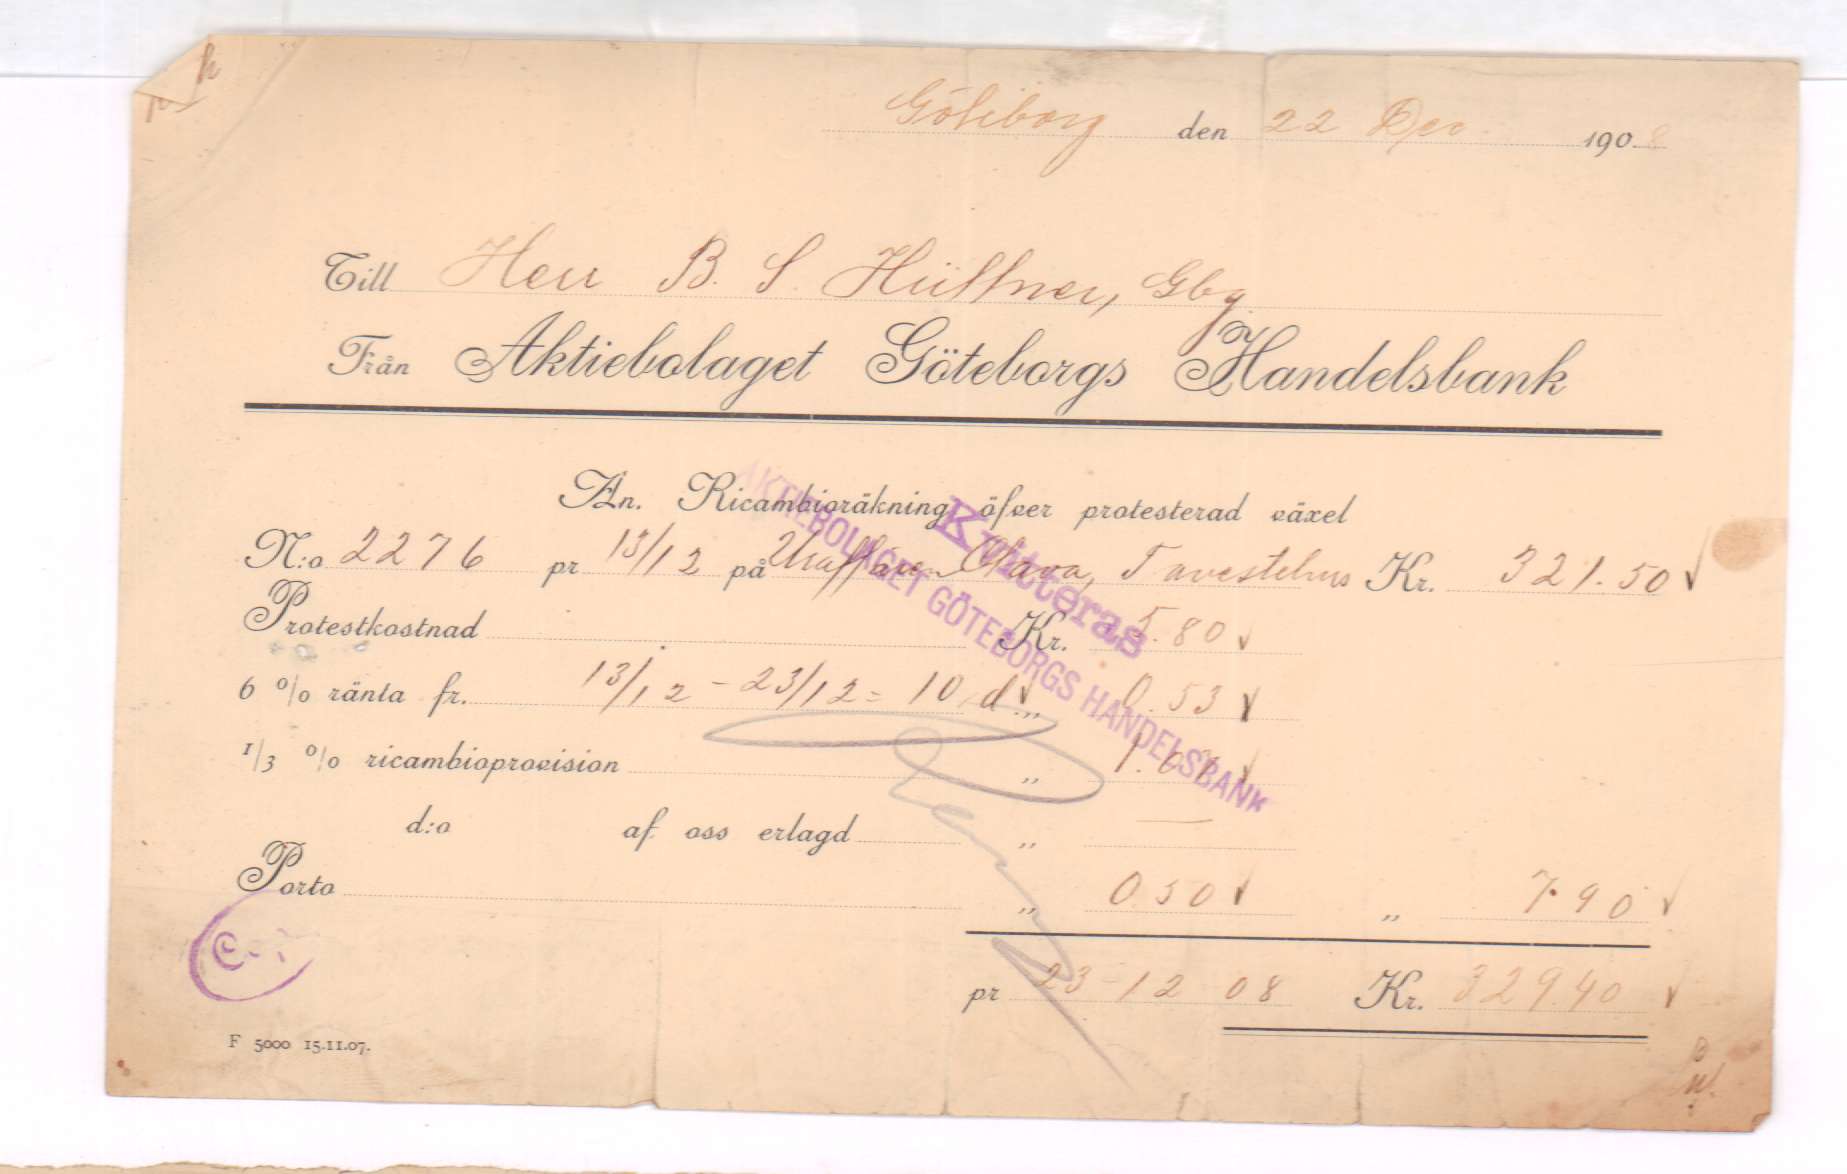 Göteborg den 22 Dec. 1908
Till Herr B. S. Hüttner, Gbg
Från Aktiebolaget Göteborgs Handelsbank
An. Ricambioräkning öfver protesterad växel
N:o 2276 pr 13/12 på Chava, Tavestehus Kr. 321.50
Kvitteras
AKTIEBOLAGET GÖTEBORGS HANDELSBANK
Protestkostnad Kr. 5.80
6 % ränta fr. 13/12 - 23/12 = 10 d. „ 0.53
1/3 % ricambioprovision „ 1.07
d:o af oss erlagd „ —
Porto „ 0.50 „ 7.90
pr 23-12 08 Kr. 329.40
F 5000 15.11.07.